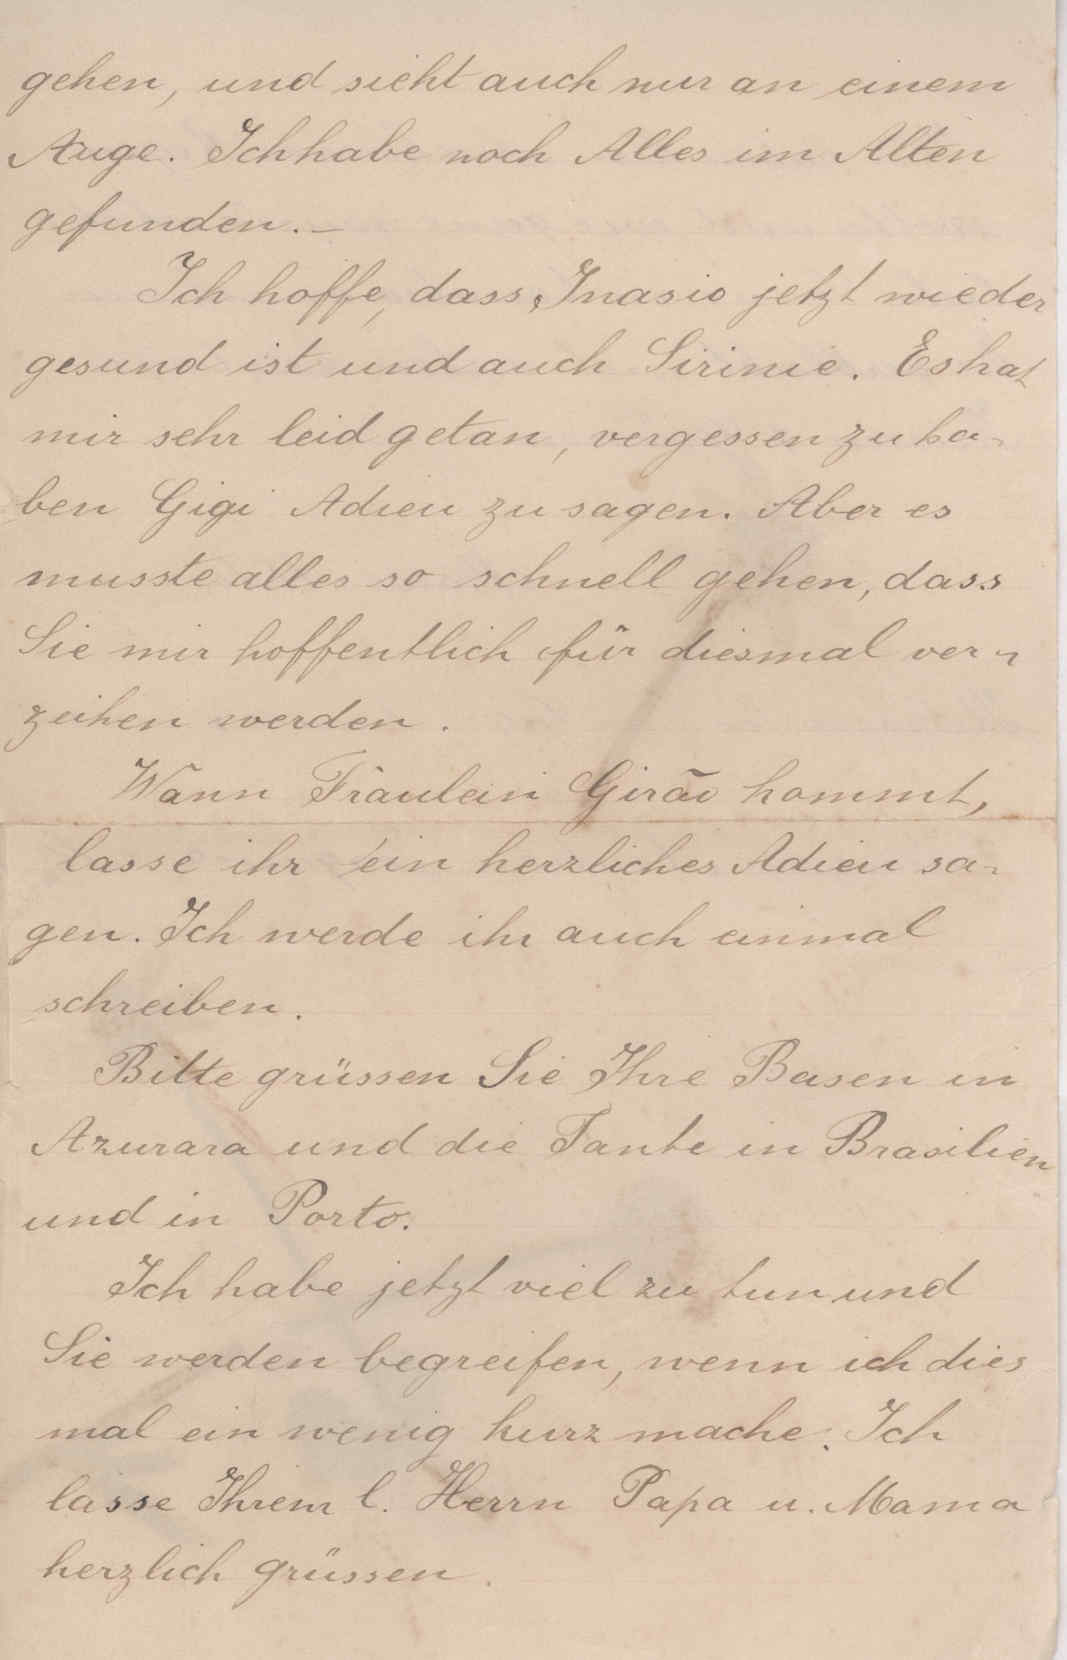 gehen, und sieht auch nur an einem
Auge. Ich habe noch Alles im Alten
gefunden. –
Ich hoffe, dass Inasio jetzt wieder
gesund ist und auch Sirinie. Es hat
mir sehr leid getan, vergessen zu ha-
ben Gigi Adieu zu sagen. Aber es
musste alles so schnell gehen, dass
Sie mir hoffentlich für diesmal ver-
zeihen werden.
Wann Fraulein Girão kommt,
lasse ihr ein herzliches Adieu sa-
gen. Ich werde ihr auch einmal
schreiben.
Bitte grüssen Sie Ihre Basen in
Azurara und die Tante in Brasilien
und in Porto.
Ich habe jetzt viel zu tun und
Sie werden begreifen, wenn ich dies
mal ein wenig kurz mache. Ich
lasse Ihrem l. Herrn Papa u. Mama
herzlich grüssen.